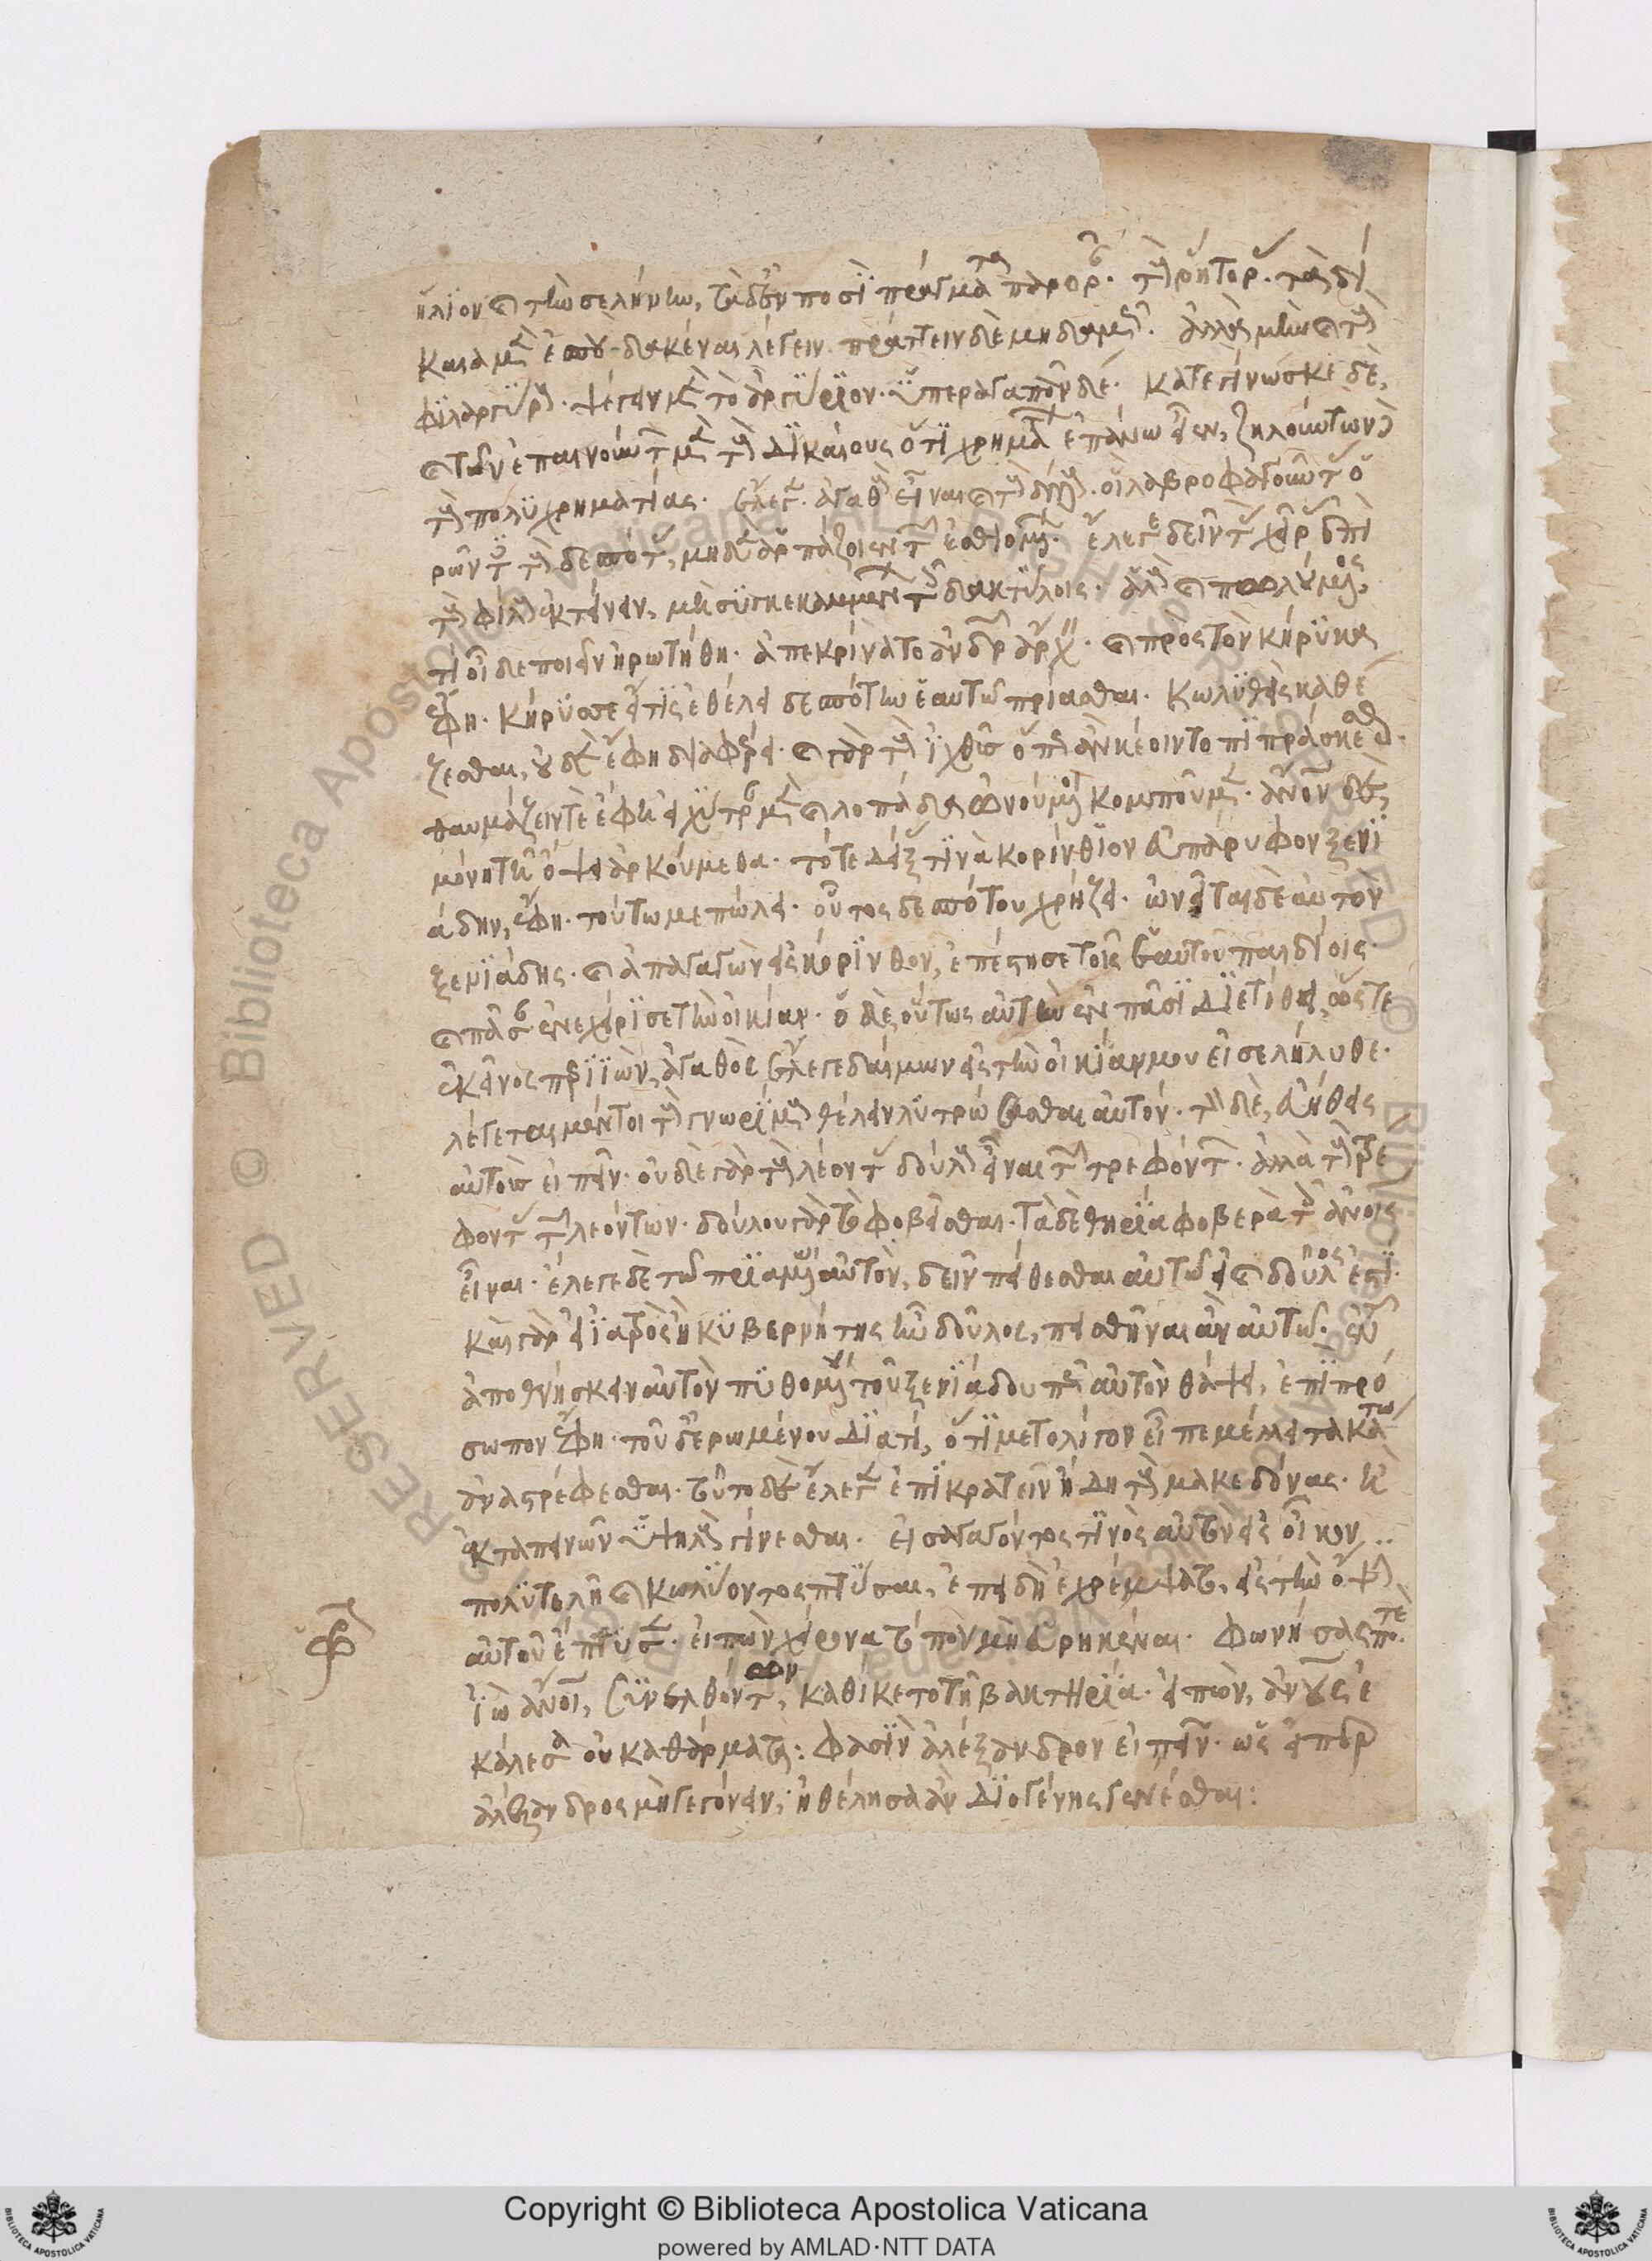 ἥλιον καὶ τὴν σελήνην, τὰ δ' ἐν ποσὶ πράγματα παρορᾶν. τοὺς ῥήτορας. τὰ δί
καια μὲν ἐσπουδακέναι λέγειν. πράττειν δὲ μηδαμῶς. ἀλλὰ μὴν καὶ τοὺς
φιλαργύρους. ψέγειν μὲν τὸ ἀργύριον. ὑπεραγαπᾶν δέ. κατεγίνωσκε δὲ,
καὶ τῶν ἐπαινούντων μὲν τοὺς δικαίους ὅτι χρημάτων ἐπάνω εἶεν, ζηλούντων δὲ
τοὺς πολυχρημάτους.
τοὺς φίλους ἐκτείνειν, μὴ συγκεκαμμένοις τοῖς δακτύλοις.
τί οἶδε ποιεῖν ἠρωτήθη. ἀπεκρίνατο ἀνδρῶν ἄρχειν. καὶ πρὸς τὸν κήρυκα
ἔφη. κήρυσσε εἴ τις ἐθέλει δεσπότην ἑαυτῷ πρίασθαι. κωλυθεὶς καθέ
ζεσθαι, οὐδὲν ἔφη διαφέρει. καὶ γὰρ τοὺς ἰχθῦς ὅπως ἂν κέοιντο πιπράσκεσθαι.
θαυμάζειν τε ἔφη εἰ χύτραν μὲν καὶ λοπάδα ὠνούμενοι κομποῦμεν. ἄνθρωπον δὲ,
μόνῃ τῇ ὄψει ἀρκούμεθα. τότε δείξας τινὰ κορίνθιον εὐπάρυφον ξενι
άδην, ἔφη. τούτῳ με πώλει. οὗτος δεσπότου χρῄζει. ὠνεῖται δὲ αὐτὸν
ξενιάδης. καὶ ἀπαγαγὼν εἰς κόρινθον, ἐπέστησε τοῖς ἑαυτοῦ παιδίοις.
καὶ πᾶσαν ἐνεχείρισε τὴν οἰκίαν. ὁ δὲ οὕτως αὐτὴν ἐν πᾶσι διετίθει, ὥστε
ἐκεῖνος περιϊὼν, ἀγαθὸς ἔλεγε δαίμων εἰς τὴν οἰκίαν μου εἰσελήλυθε.
λέγεται μέντοι τοὺς γνωρίμους θέλειν λυτρώσασθαι αὐτόν. τοὺς δὲ, εὐήθεις
αὐτοὺς εἰπεῖν. οὐδὲ γὰρ τοὺς λέοντας δούλους εἶναι τῶν τρεφόντων. ἀλλὰ τοὺς τρέ
φοντας τῶν λεόντων. δούλου γὰρ τὸ φοβεῖσθαι. τὰ δὲ θηρία φοβερὰ τοῖς ἀνθρώποις
εἶναι. ἔλεγε δὲ τῷ πριαμένῳ αὐτὸν, δεῖν πείθεσθαι αὐτῷ εἰ καὶ δοῦλος ἐστί.
καὶ γὰρ εἰ ἰατρὸς ἢ κυβερνήτης ἦν δοῦλος, πεισθῆναι ἂν αὐτῷ.
ἀποθνήσκειν αὐτὸν πυθομένου τοῦ ξενιάδου πῶς αὐτὸν θάψει, ἐπὶ πρό
σωπον ἔφη. τοῦ δ' ἐρωμένου διατί, ὅτι μετ' ὀλίγον εἶπε μέλλει τὰ κάτω
ἀναστρέφεσθαι. τοῦτο δὲ ἔλεγεν ἐπικρατεῖν ἤδη τοὺς μακεδόνας. ἢ
ἐκ ταπεινῶν ὑψηλοὺς γίνεσθαι. εἰσαγαγόντος τινὸς αὐτὸν εἰς οἶκον
πολυτελῆ καὶ κωλύοντος πτύσαι, ἐπειδὴ ἐχρέμψατο, εἰς τὴν ὄψιν
αὐτοῦ ἔπτυσεν. εἰπὼν χείρονα τόπον μὴ εὑρηκέναι. φωνήσας ποτὲ
ἰὼ ἄνθρωποι, συνελθόντων, καθίκετο τῇ βακτηρίᾳ. εἰπὼν, ἀνθρώπους ἐ
κάλεσα οὐ καθάρματα: φασὶν ἀλέξανδρον εἰπεῖν. ὡς εἴπερ
ἀλέξανδρος μὴ γεγόνειν, ἠθέλησα ἂν διογένης γενέσθαι:
Copyright © Biblioteca Apostolica Vaticana
powered by AMLAD·NTT DATA